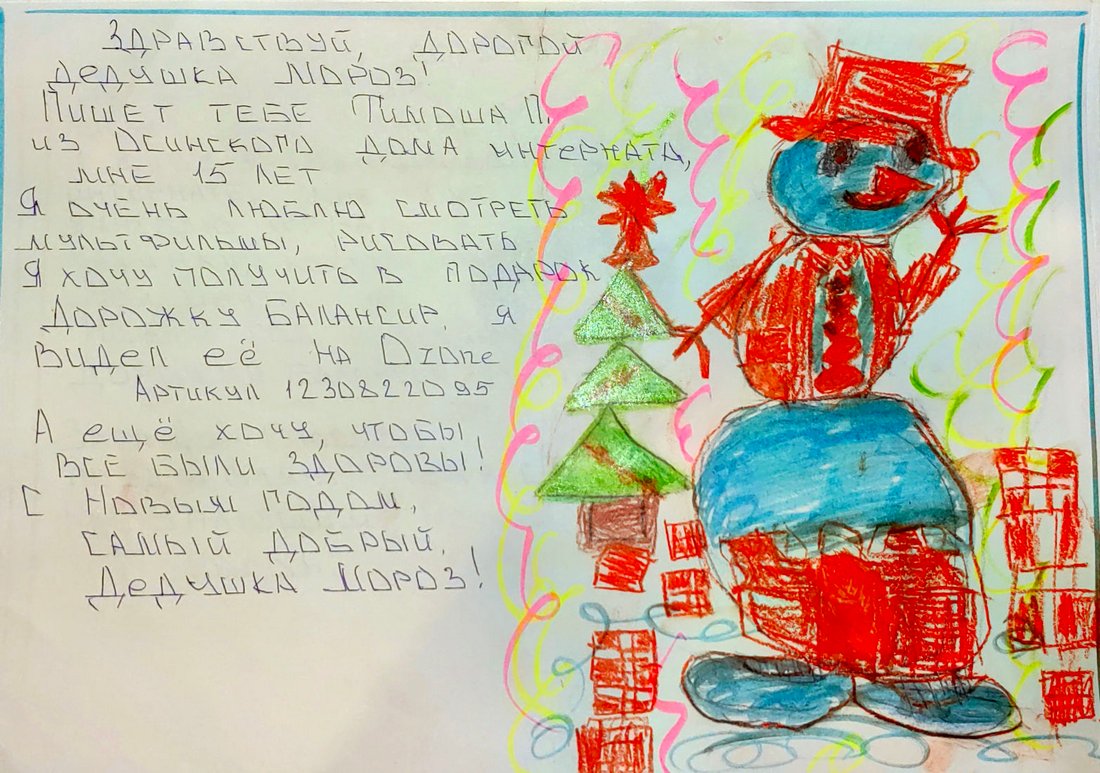 Здравствуй, дорогой
Дедушка Мороз!
Пишет тебе Тимоша П.
из Осинского дома интерната,
мне 15 лет
Я очень люблю смотреть
мультфильмы, рисовать
Я хочу получить в подарок
Дорожку балансир. Я
видел её на Ozone
Артикул 1230822095
А ещё хочу, чтобы
все были здоровы!
С Новым годом,
самый добрый,
Дедушка Мороз!